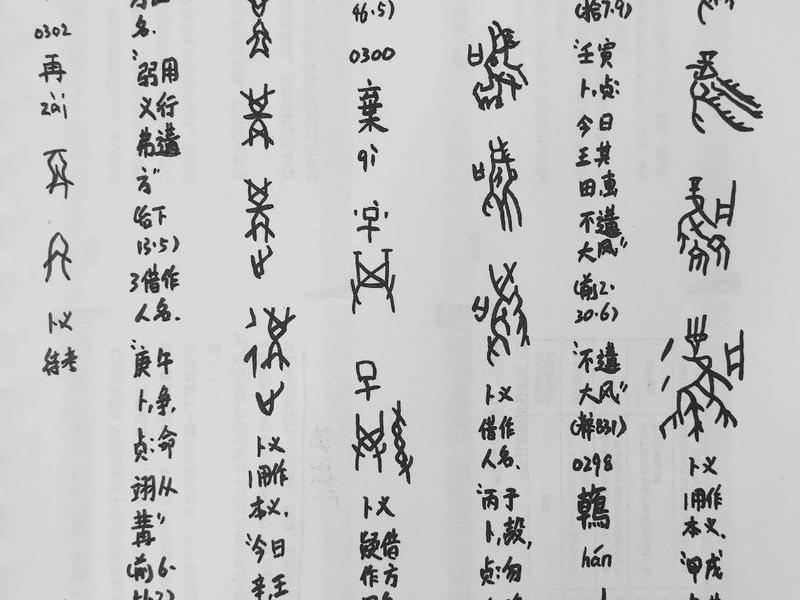 卜义
1用作
本义.
"甲戌
(拾7.9)
"壬寅
卜,贞:
今日
王其
田,叀
不遘
大风"
(前2.
30.6)
"不遘
大风"
(粹831)
0298
hán
卜义
借作
人名.
"丙子
卜,㱿,
贞:勿
46.5)
0300
棄
qì
卜义
疑借
作方
卜义
1用作
本义.
"今日
辛,王
名.
"弜用
义行
弗遘
方"
(后下
13.5)
3借作
人名.
"庚午
卜,争,
贞:命
翊从
冓"
(前6.
0302
再
zài
卜义
待考